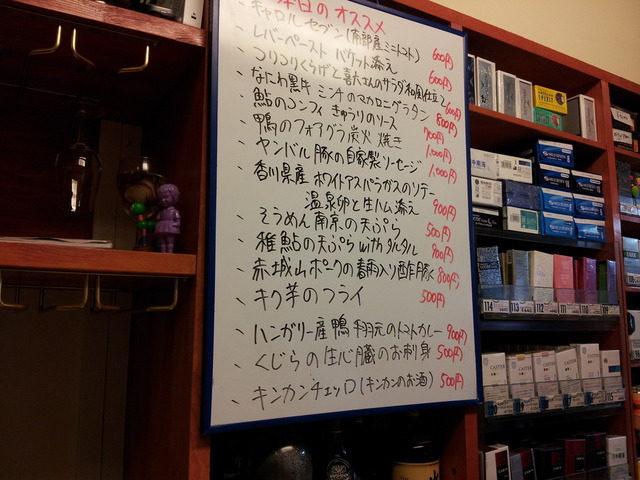 本日のオススメ
キャロルセブン(南部産ミニトマト) 600円
レバーペースト バケット添え 600円
コリコリくらげと喜太さんのサラダ 和風仕立て 600円
なにわ黒牛 ミンチのマカロニグラタン 800円
鮎のコンフィ きゅうりのソース 700円
鴨のフォアグラ炭火焼き 1,000円
ヤンバル豚の自家製ソーセージ 1,000円
香川県産 ホワイトアスパラガスのソテー
温泉卵と生ハム添え 900円
そうめん南京の天ぷら 500円
稚鮎の天ぷら with タルタル 900円
赤城山ポークの春雨入り酢豚 800円
キク芋のフライ 500円
ハンガリー産鴨 手羽元のトマトカレー 900円
くじらの生心臓のお刺身 500円
キンカンチェッロ(キンカンのお酒) 500円
114 113 112 111 110 109
CASTER
115